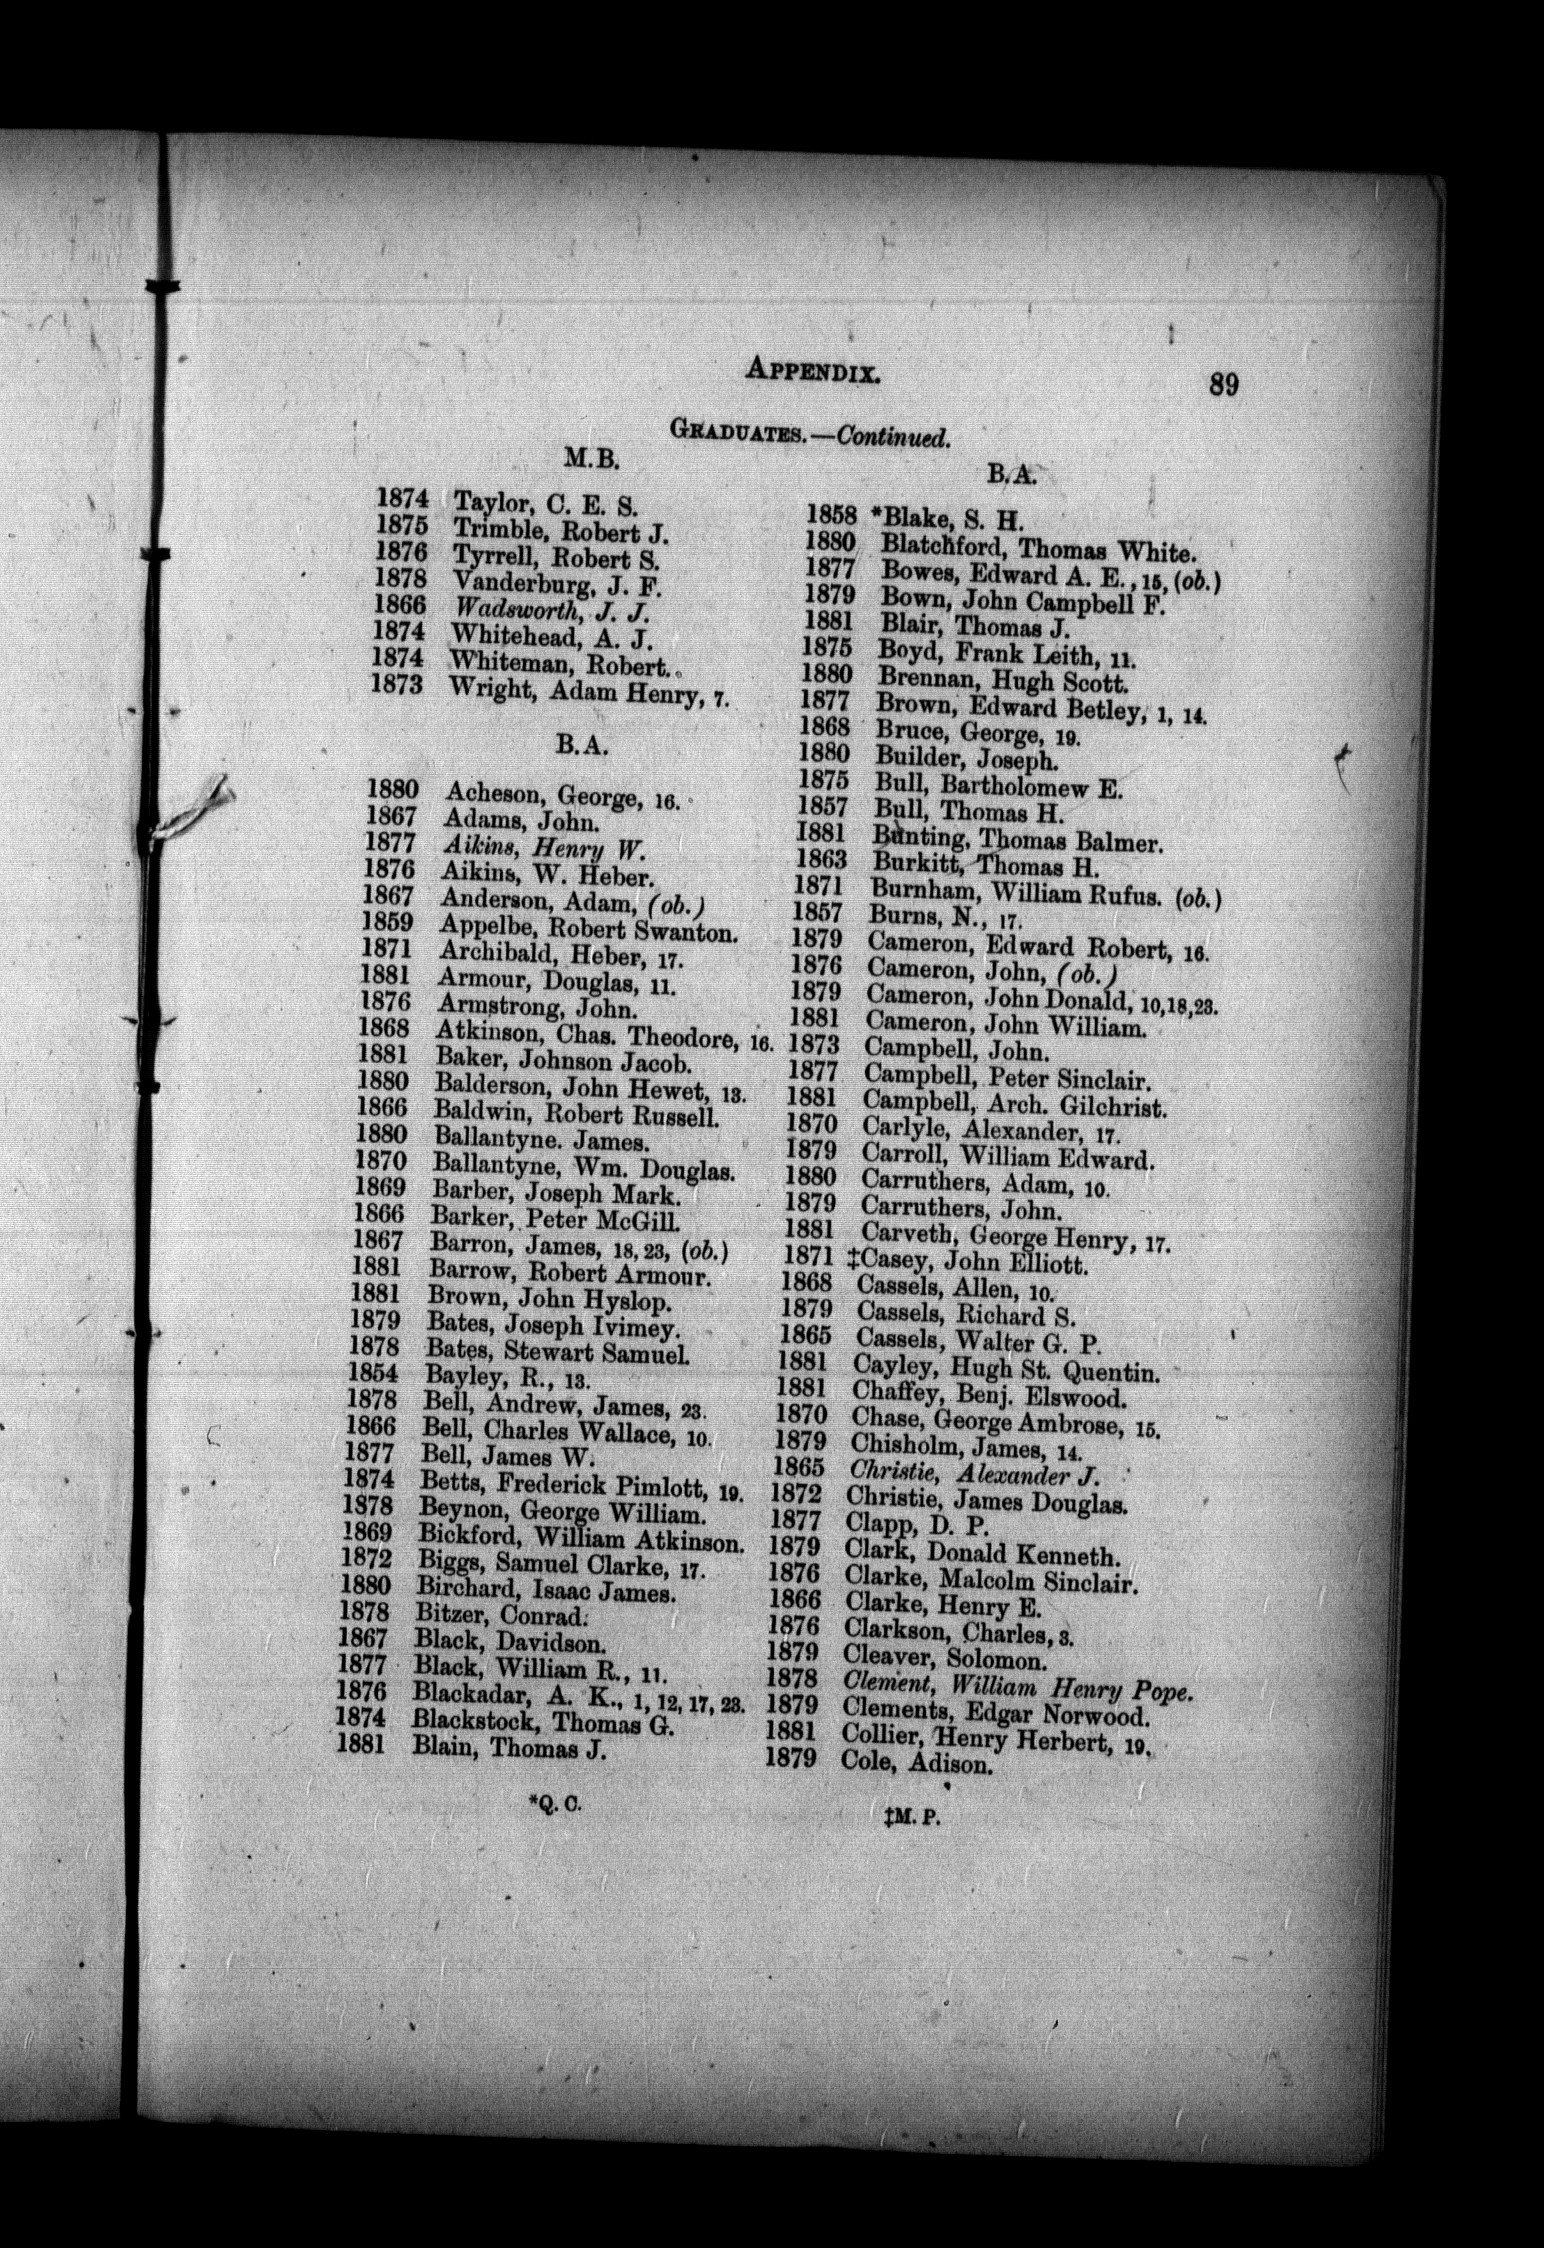 APPENDIX.
89
GRADUATES.—Continued.
M.B.
1874 Taylor, C. E. S.
1875 Trimble, Robert J.
1876 Tyrrell, Robert S.
1878 Vanderburg, J. F.
1866 Wadsworth, J. J.
1874 Whitehead, A. J.
1874 Whiteman, Robert.
1873 Wright, Adam Henry, 7.
B.A.
1880 Acheson, George, 16.
1867 Adams, John.
1877 Aikins, Henry W.
1876 Aikins, W. Heber.
1867 Anderson, Adam, (ob.)
1859 Appelbe, Robert Swanton.
1871 Archibald, Heber, 17.
1881 Armour, Douglas, 11.
1876 Armstrong, John.
1868 Atkinson, Chas. Theodore, 16.
1881 Baker, Johnson Jacob.
1880 Balderson, John Hewet, 13.
1866 Baldwin, Robert Russell.
1880 Ballantyne. James.
1870 Ballantyne, Wm. Douglas.
1869 Barber, Joseph Mark.
1866 Barker, Peter McGill.
1867 Barron, James, 18, 23, (ob.)
1881 Barrow, Robert Armour.
1881 Brown, John Hyslop.
1879 Bates, Joseph Ivimey.
1878 Bates, Stewart Samuel.
1854 Bayley, R., 13.
1878 Bell, Andrew, James, 23.
1866 Bell, Charles Wallace, 10.
1877 Bell, James W.
1874 Betts, Frederick Pimlott, 19.
1878 Beynon, George William.
1869 Bickford, William Atkinson.
1872 Biggs, Samuel Clarke, 17.
1880 Birchard, Isaac James.
1878 Bitzer, Conrad.
1867 Black, Davidson.
1877 Black, William R., 11.
1876 Blackadar, A. K., 1, 12, 17, 23.
1874 Blackstock, Thomas G.
1881 Blain, Thomas J.
*Q. C.
B.A.
1858 *Blake, S. H.
1880 Blatchford, Thomas White.
1877 Bowes, Edward A. E., 15, (ob.)
1879 Bown, John Campbell F.
1881 Blair, Thomas J.
1875 Boyd, Frank Leith, 11.
1880 Brennan, Hugh Scott.
1877 Brown, Edward Betley, 1, 14.
1868 Bruce, George, 19.
1880 Builder, Joseph.
1875 Bull, Bartholomew E.
1857 Bull, Thomas H.
1881 Bunting, Thomas Balmer.
1863 Burkitt, Thomas H.
1871 Burnham, William Rufus. (ob.)
1857 Burns, N., 17.
1879 Cameron, Edward Robert, 16.
1876 Cameron, John, (ob.)
1879 Cameron, John Donald, 10,18,23.
1881 Cameron, John William.
1873 Campbell, John.
1877 Campbell, Peter Sinclair.
1881 Campbell, Arch. Gilchrist.
1870 Carlyle, Alexander, 17.
1879 Carroll, William Edward.
1880 Carruthers, Adam, 10.
1879 Carruthers, John.
1881 Carveth, George Henry, 17.
1871 ‡Casey, John Elliott.
1868 Cassels, Allen, 10.
1879 Cassels, Richard S.
1865 Cassels, Walter G. P.
1881 Cayley, Hugh St. Quentin.
1881 Chaffey, Benj. Elswood.
1870 Chase, George Ambrose, 15.
1879 Chisholm, James, 14.
1865 Christie, Alexander J.
1872 Christie, James Douglas.
1877 Clapp, D. P.
1879 Clark, Donald Kenneth.
1876 Clarke, Malcolm Sinclair.
1866 Clarke, Henry E.
1876 Clarkson, Charles, 3.
1879 Cleaver, Solomon.
1878 Clement, William Henry Pope.
1879 Clements, Edgar Norwood.
1881 Collier, Henry Herbert, 19.
1879 Cole, Adison.
‡M. P.